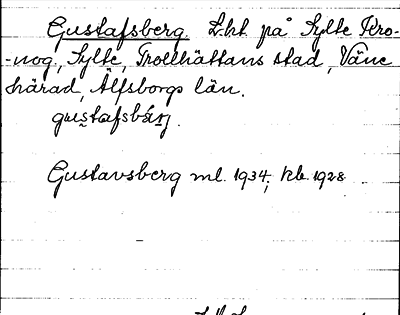 Gustafsberg. L.ht. på Sylte Kro-
-nog, Sylte, Trollhättans stad, Väne
härad, Älfsborgs län.
gustafsbárj.
Gustavsberg ml. 1934; kb. 1928